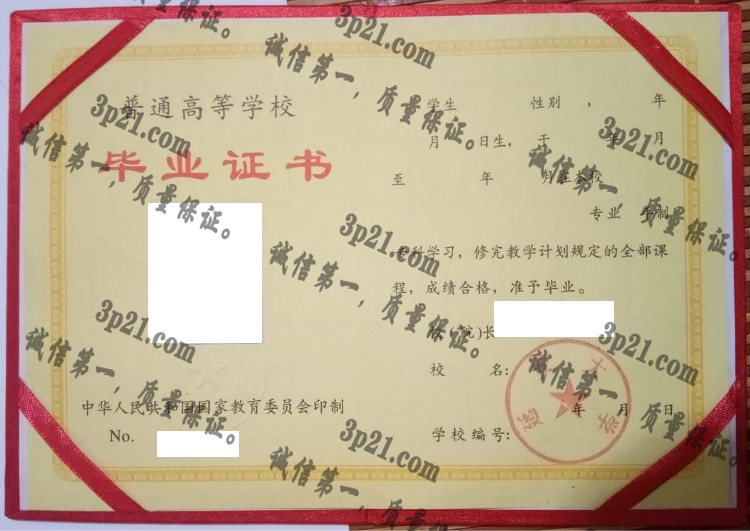 普通高等学校
毕业证书
中华人民共和国国家教育委员会印制
No.
学生 性别 , 年
月 日生, 于 年 月
至 年 月在本校
专业 年制
专科学习, 修完教学计划规定的全部课
程, 成绩合格, 准予毕业。
校(院)长
校 名:
年 月 日
学校编号:
大学
3p21.com
诚信第一,质量保证。
3p21.com
诚信第一,质量保证。
3p21.com
诚信第一,质量保证。
3p21.com
诚信第一,质量保证。
3p21.com
诚信第一,质量保证。
3p21.com
诚信第一,质量保证。
3p21.com
诚信第一,质量保证。